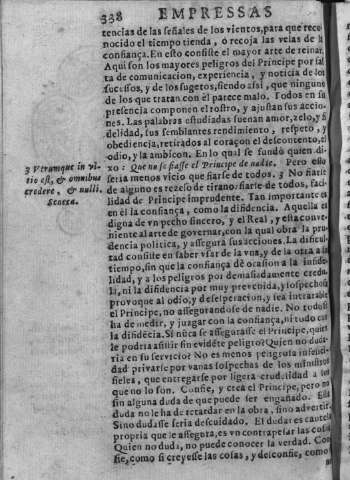 338 EMPRESSAS
tencias de las señales de los vientos, para que reco
nocido el tiempo tienda, o recoja las velas de la
confiança. En esto consiste el mayor arte de reinar.
Aqui son los mayores peligros del Principe por fal
ta de comunicacion, experiencia, y noticia de los
sucessos, y de los sugetos, siendo assi, que ninguno
de los que tratan con el parece malo. Todos en su
presencia componen el rostro, y ajustan sus accio
nes. Las palabras estudiadas suenan amor, zelo, y fi
delidad, sus semblantes rendimiento, respeto, y
obediencia, retirados al coraçon el descontento, el
odio, y la ambicion. En lo qual se fundò quien di
xo: Que no se fiasse el Principe de nadie. Pero esto
seria menos vicio que fiarse de todos. 3 No fiarse
de alguno es rezelo de tirano: fiarse de todos, faci
lidad de Principe imprudente. Tan importante es
en èl la confiança, como la difidencia. Aquella es
digna de vn pecho sincero, y el Real, y esta conve
niente al arte de governar, con la qual obra la pru
dencia politica, y assegura sus acciones. La dificul
tad consiste en saber vsar de la vna, y de la otra a su
tiempo, sin que la confiança dè ocasion a la infide
lidad, y a los peligros por demasiadamente credu
la, ni la difidencia por muy prevenida, y sospechosa
provoque al odio, y desesperacion, y sea intratable
el Principe, no assegurandose de nadie. No todo se
ha de medir, y juzgar con la confiança, ni todo con
la difidēcia. Si nūca se assegurasse el Principe, quien
le podria assistir sin evidēte peligro? Quien no duda-
ria en su servicio? No es menos peligrosa infelici-
dad privarse por vanas sospechas de los ministros
fieles, que entregarse por ligera credulidad a los
que no lo son. Confie, y crea el Principe, pero no
sin alguna duda de que puede ser engañado. Esta
duda no le ha de retardar en la obra, sino advertir.
Sino dudasse seria descuidado. El dudar es cautela
propria que le assegura, es vn contrapesar las cosas.
Quien no duda, no puede conocer la verdad. Con
fie, como si creyesse las cosas, y desconfie, como
3 Vtrumque in vi-
tio est, & omnibus
credere, & nulli.
Seneca.